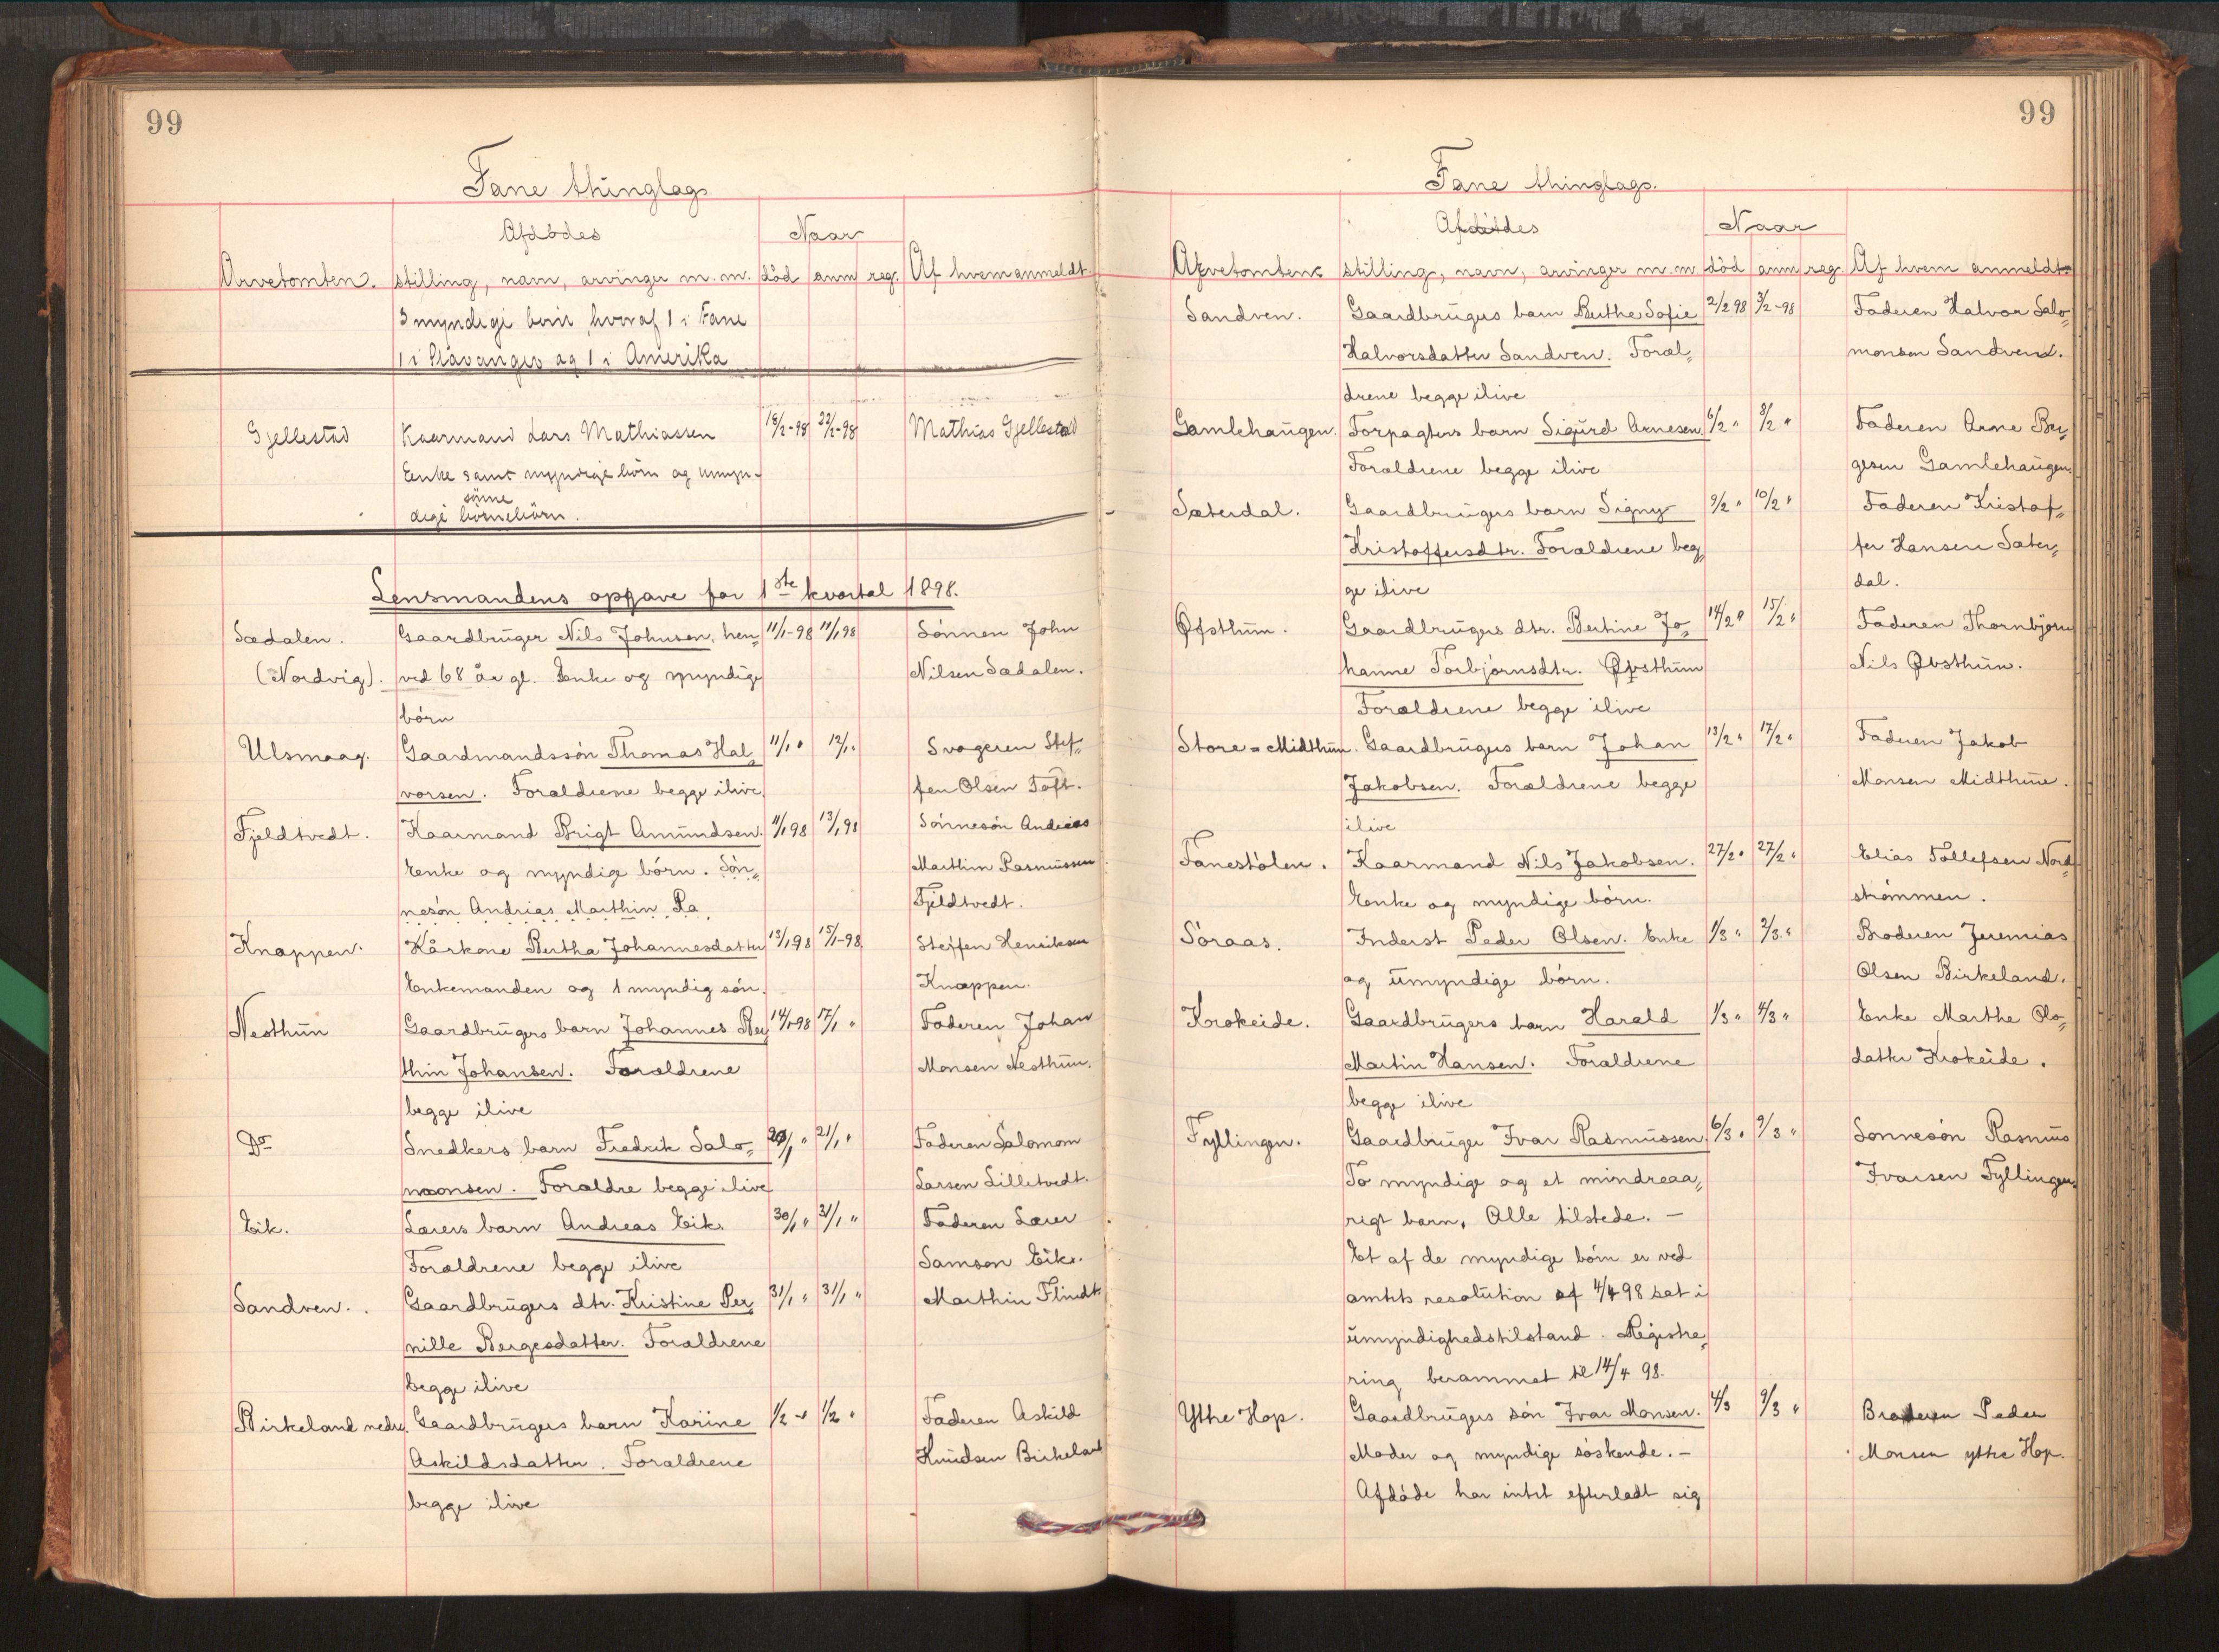 99
Fane thinglag
Afdødes
Naar
Arvetomten. stilling, navn, arvinger m. m. død anm reg. Af hvem anmeldt
3 myndige børn hvoraf 1 i Fane
1 i Stavanger og 1 i Amerika
Gjellestad Kaarmand Lars Mathiassen 18/2-98 22/2-98 Mathias Gjellestad
Enke samt myndige børn og umyn-
sønne
dige børnebørn.
Lensmandens opgave for 1ste kvartal 1898.
Sædalen. Gaardbruger Nils Johnsen, hen- 11/1-98 11/1 98 Sønnen John
(Nordvig). ved 68 år gl. Enke og myndige Nilsen Sædalen.
børn
Ulsmaag. Gaardmandssøn Thomas Hal- 11/1 " 12/1 " Svogeren Stef-
vorsen. Forældrene begge ilive. fen Olsen Toft.
Fjeldtvedt. Kaarmand Brigt Amundsen. 11/1 98 13/1 98 Sønnesøn Andreas
Enke og myndige børn. Søn- Marthin Rasmussen
nesøn Andrias Marthin Ra Fjeldtvedt.
Knappen. Kårkone Bertha Johannesdatter 13/1 98 15/1-98 Steffen Henriksen
Enkemanden og 1 myndig søn. Knappen.
Nesthun Gaardbrugers barn Johannes Ber- 14/1 98 17/1 " Faderen Johan
thin Johansen. Forældrene Monsen Nesthun.
begge ilive
Do Snedkers barn Fredrik Salo- 20/1 " 21/1 " Faderen Salomon
monsen. Forældre begge ilive Larsen Lilletvedt.
Eik. Lærers barn Andreas Eik. 30/1 " 31/1 " Faderen Lærer
Forældrene begge ilive Samson Eik.
Sandven. Gaardbrugers dtr. Kristine Per- 31/1 " 31/1 " Marthin Flindt
nille Bergesdatter. Forældrene
begge ilive
Birkeland nedre. Gaardbrugers barn Karine 1/2 " 1/2 " Faderen Askild
Askildsdatter. Forældrene Knudsen Birkeland
begge ilive
99
Fane thinglag.
Afdødes
Naar
Arvetomten. stilling, navn, arvinger m. m. død anm reg. Af hvem anmeldt
Sandven. Gaardbrugers barn Berthe Sofie 2/2 98 3/2-98 Faderen Halvor Salo-
Halvorsdatter Sandven. Foræl- monsen Sandvend.
drene begge ilive
Gamlehaugen. Forpagters barn Sigurd Arnesen. 6/2 " 8/2 " Faderen Arne Ber-
Forældrene begge ilive gesen Gamlehaugen.
Sæterdal. Gaardbrugers barn Signy 9/2 " 10/2 " Faderen Kristof-
Kristoffersdtr. Forældrene beg- fer Hansen Sæter-
ge ilive dal.
Øfsthun. Gaardbrugers dtr. Bertine Jo- 14/2 " 15/2 " Faderen Thornbjørn
hanne Torbjørnsdtr. Øfsthun Nils Øvsthun.
Forældrene begge ilive
Store-Midthun. Gaardbrugers barn Johan 13/2 " 17/2 " Faderen Jakob
Jakobsen. Forældrene begge Monsen Midthun.
ilive
Fanestølen. Kaarmand Nils Jakobsen. 27/2 " 27/2 " Elias Tollefsen Nord-
Enke og myndige børn. strømmen.
Søraas. Inderst Peder Olsen. Enke 1/3 " 2/3 " Broderen Jeremias
og umyndige børn. Olsen Birkeland.
Krokeide. Gaardbrugers barn Harald 1/3 " 4/3 " Enke Marthe Ols-
Martin Hansen. Forældrene datter Krokeide.
begge ilive
Fyllingen. Gaardbruger Ivar Rasmussen. 6/3 " 9/3 " Sønnesøn Rasmus
To myndige og et mindreaa- Ivarsen Fyllingen.
rigt barn. Alle tilstede. —
Et af de myndige børn er ved
amtets resolution af 4/4 98 sat i
umyndighedstilstand. Registre-
ring berammet til 14/4 98.
Ytre Hop. Gaardbrugers søn Ivar Monsen. 4/3 9/3 " Broderen Peder
Moder og myndige søskende. — Monsen ytre Hop.
Afdøde har intet efterladt sig